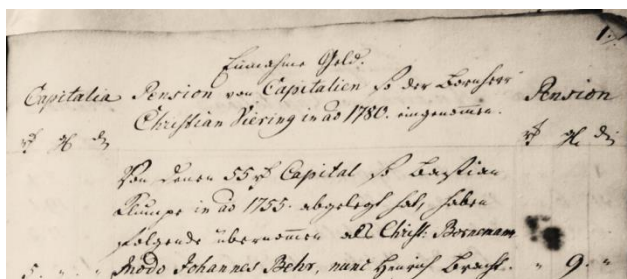 1.
Einnahme Geld.
Capitalia Pension von Capitalien so der Bornherr Pension
Christian Siering in aõ 1780. eingenommen.
Von denen 55 rt Capital so Bastian
Klumpe in aõ 1755. abgelegt hat, haben
folgende übernommen als Christ: Bornemann
5. " " modo Johannes Behr, nunc Henrich Bracht. " 9. "